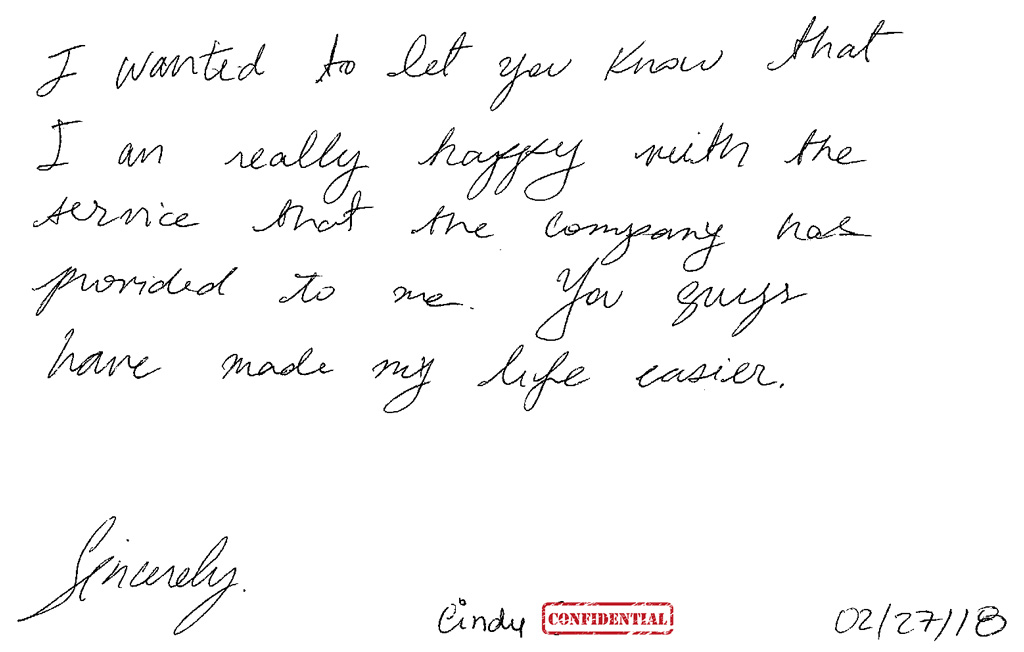 I wanted to let you know that
I am really happy with the
service that the company has
provided to me. You guys
have made my life easier.
Sincerely.
Cindy CONFIDENTIAL 02/27/18